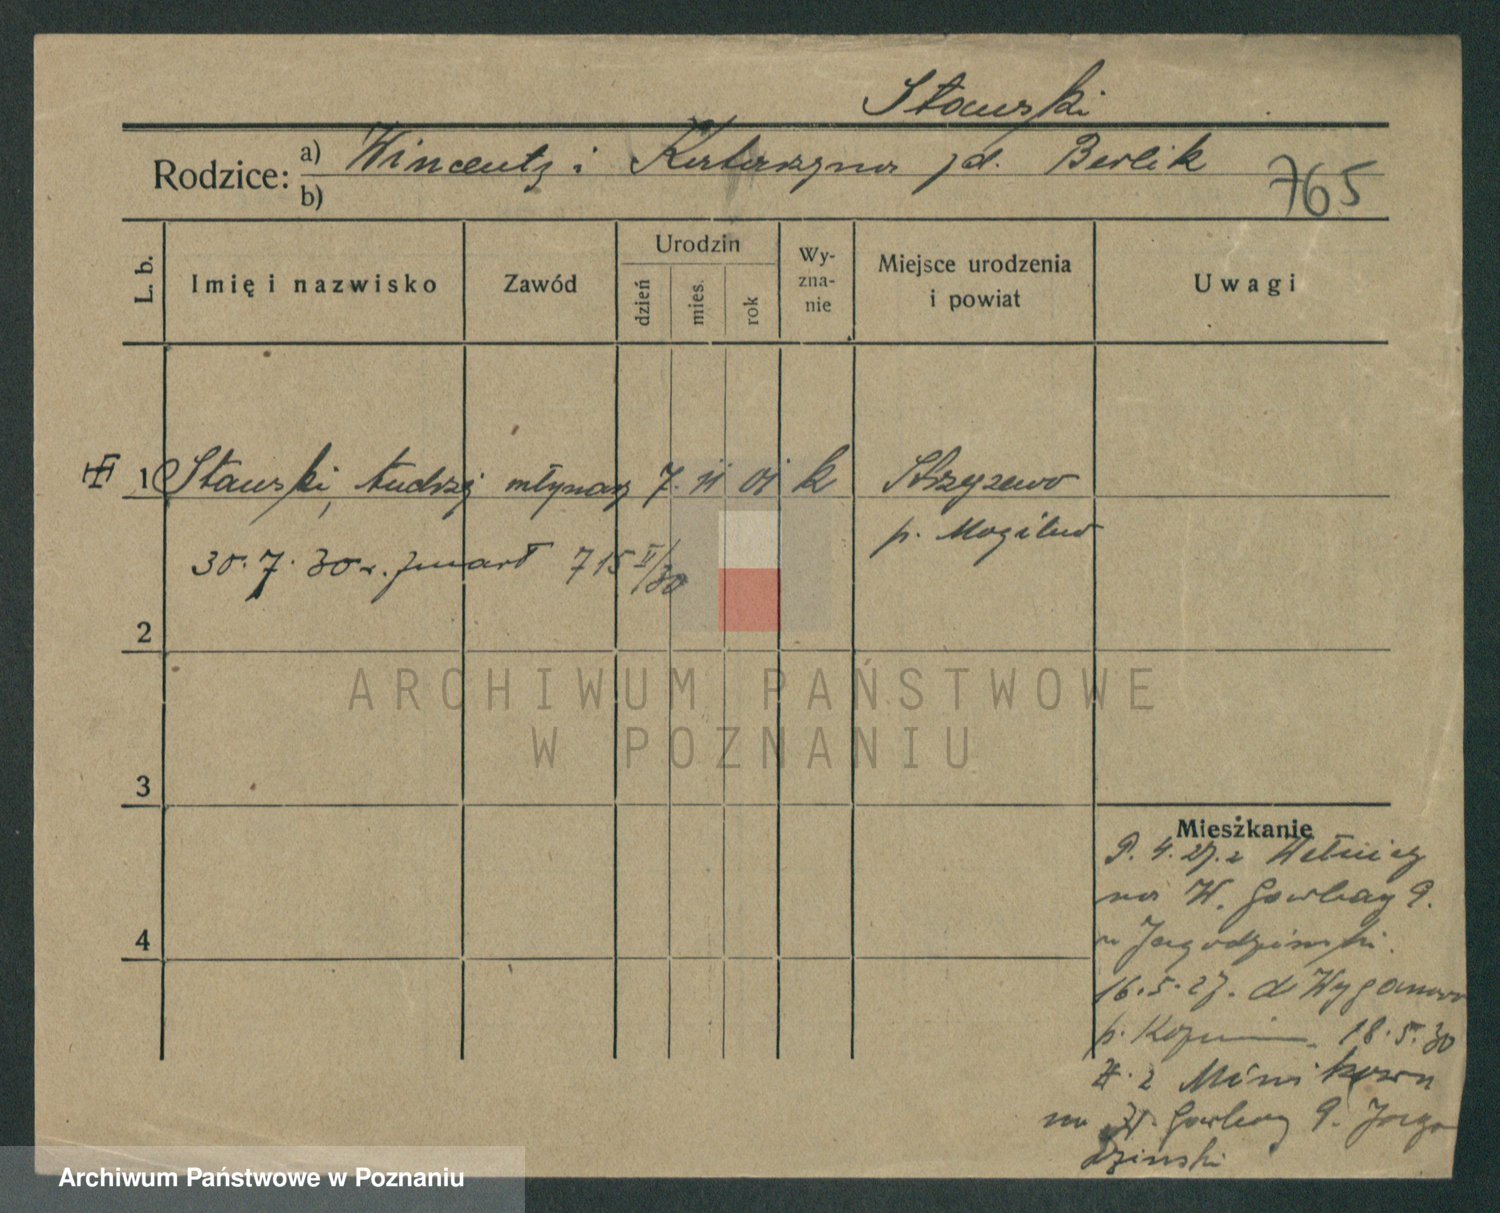 Stawski
Rodzice: a) Wincenty i Katarzyna zd. Berlik
b)
765
L. b.
Imię i nazwisko
Zawód
Urodzin
dzień
mies.
rok
Wy-
zna-
nie
Miejsce urodzenia
i powiat
Uwagi
1 Stawski, Andrzej młynarz 7. 11 01 k Strzyżewo
p. Mogilno
30. 7. 30 r. zmarł 715 V/30
2
3
4
ARCHIWUM PAŃSTWOWE
W POZNANIU
Mieszkanie
9. 4. 27. z Wełnicy
na W. Garbary 9.
u Jagodziński.
16. 5. 27. do Wyganowo
p. Koźmin 18. 5. 30
z Minikowa
na W. Garbary 9. Jago
dziński
Archiwum Państwowe w Poznaniu